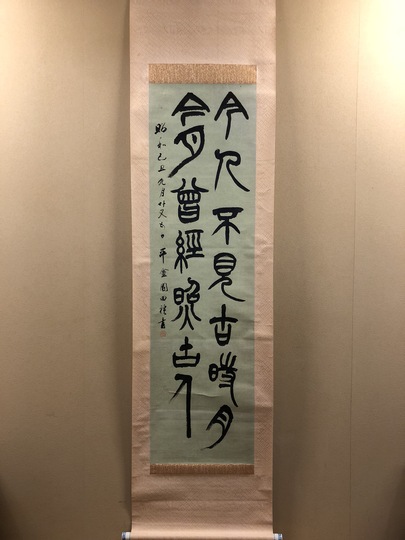 今人不見古時月
今月曾經照古人
昭和己丑九月廿又日 平盦園田穆書